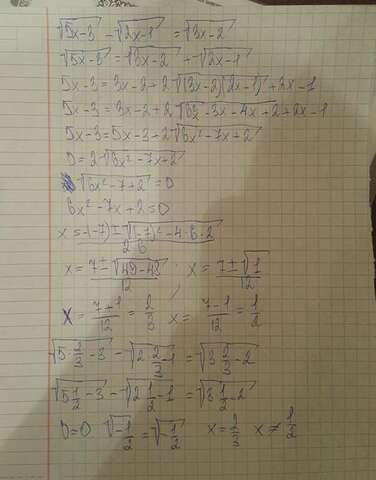 √5x-3 - √2x-1 = √3x-2
√5x-3 = √3x-2 + √2x-1
5x-3=3x-2+2√(3x-2)(2x-1)+2x-1
5x-3=3x-2+2√6x²-3x-4x+2+2x-1
5x-3=5x-3+2√6x²-7x+2
0=2√6x²-7x+2
√6x²-7+2=0
6x²-7x+2=0
x=-(-7)±√(-7)²-4·6·2/2·6
x=7±√49-48/12 ; x=7±√1/12
x=7+1/12=2/3 ; x=7-1/12=1/2
√5·2/3-3 - √2·2/3-1 = √3·2/3-2
√5·1/2-3 - √2·1/2-1 = √3·1/2-2
0=0 √-1/2=√-1/2 x=2/3 x≠1/2